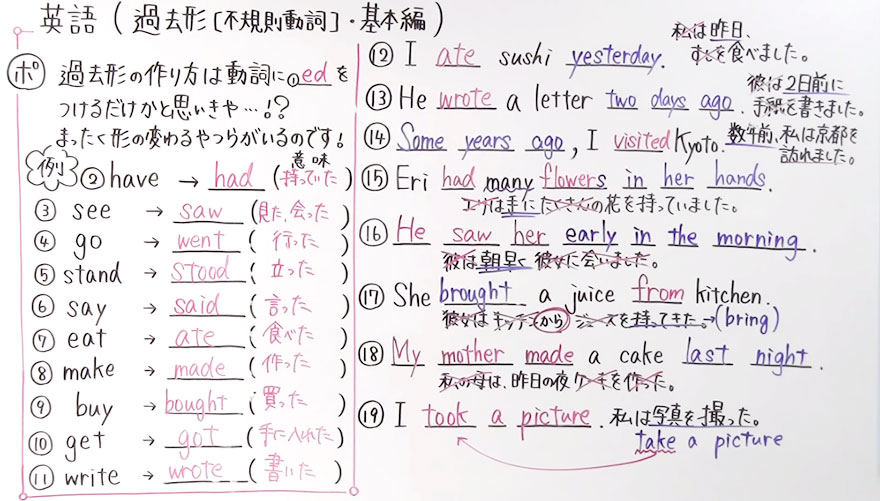 英語(過去形[不規則動詞]・基本編)
ポ 過去形の作り方は動詞に①edを
つけるだけかと思いきや…!?
まったく形の変わるやつらがいるのです!
例 意味
② have → had (持っていた)
③ see → saw (見た、会った)
④ go → went (行った)
⑤ stand → stood (立った)
⑥ say → said (言った)
⑦ eat → ate (食べた)
⑧ make → made (作った)
⑨ buy → bought (買った)
⑩ get → got (手に入れた)
⑪ write → wrote (書いた)
⑫ I ate sushi yesterday. 私は昨日、
すしを食べました。
⑬ He wrote a letter two days ago. 彼は2日前に
手紙を書きました。
⑭ Some years ago, I visited Kyoto. 数年前、私は京都を
訪れました。
⑮ Eri had many flowers in her hands.
エリは手にたくさんの花を持っていました。
⑯ He saw her early in the morning.
彼は朝早く彼女に会いました。
⑰ She brought a juice from kitchen.
彼女はキッチンからジュースを持ってきた。→(bring)
⑱ My mother made a cake last night.
私の母は、昨日の夜ケーキを作った。
⑲ I took a picture. 私は写真を撮った。
take a picture